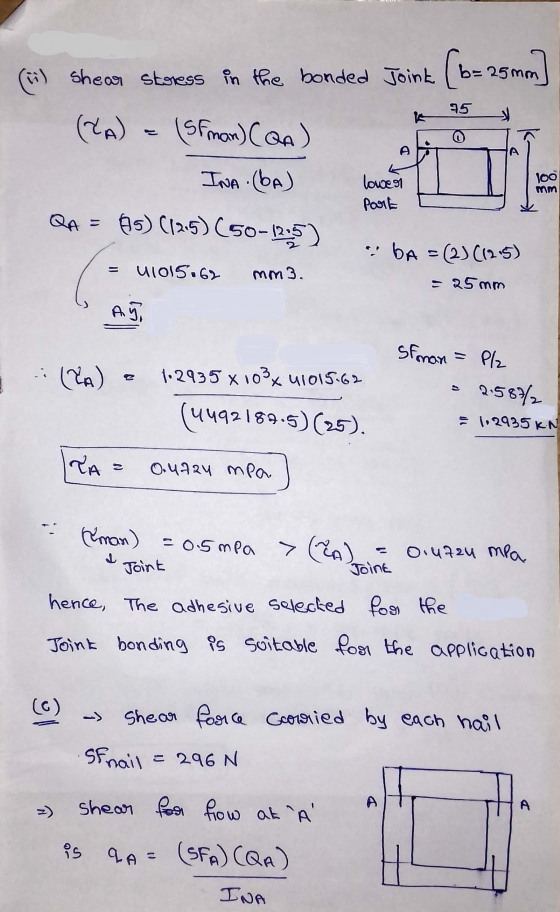 (ii) Shear stress in the bonded Joint [b=25mm]
(τA) = (SFmax)(QA)
INA.(bA)
75
①
A A
lower Part
100 mm
QA = (75)(12.5)(50-12.5/2)
= 41015.62 mm3.
Aȳ,
∵ bA = (2)(12.5)
= 25mm
SFmax = P/2
= 2.587/2
= 1.2935 KN
∴ (τA) = 1.2935 x 10³ x 41015.62
(4492187.5)(25).
τA = 0.4724 mPa
∵ (τmax) = 0.5mPa > (τA) = 0.4724 mPa
↓ Joint Joint
hence, The adhesive selected for the
Joint bonding is suitable for the application
(c) → Shear force Carried by each nail
SFnail = 296 N
⇒ Shear for flow at 'A'
A A
is qA = (SFA)(QA)
INA